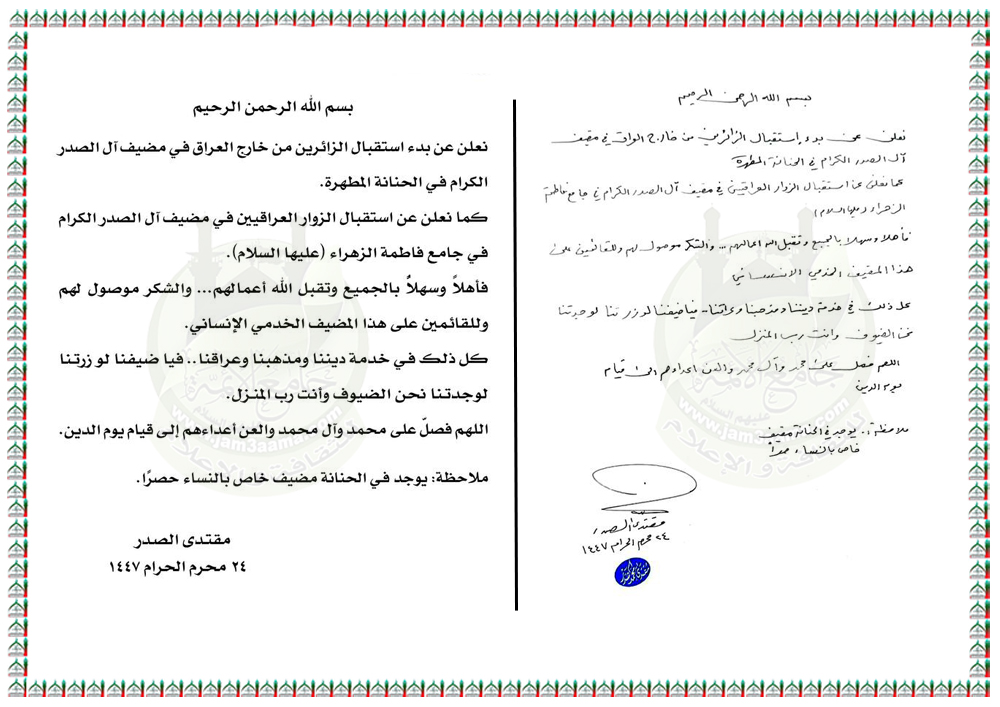 بسم الله الرحمن الرحيم
نعلن عن بدء إستقبال الزائرين من خارج العراق في مضيف
آل الصدر الكرام في الحنانة المطهرة
كما نعلن عن استقبال الزوار العراقيين في مضيف آل الصدر الكرام في جامع فاطمة
الزهراء (عليها السلام)
فأهلا وسهلا بالجميع وتقبل الله اعمالهم ... والشكر موصول لهم وللقائمين على
هذا المضيف الخدمي الانساني
كل ذلك في خدمة ديننا ومذهبنا وعراقنا .. فيا ضيفنا لو زرتنا لوجدتنا
نحن الضيوف وانت رب المنزل
اللهم فصل على محمد وآل محمد والعن اعداءهم الى قيام
يوم الدين
ملاحظة : يوجد في الحنانة مضيف
خاص بالنساء حصراً
مقتدى الصدر
٢٤ محرم الحرام ١٤٤٧
بسم الله الرحمن الرحيم
نعلن عن بدء استقبال الزائرين من خارج العراق في مضيف آل الصدر
الكرام في الحنانة المطهرة.
كما نعلن عن استقبال الزوار العراقيين في مضيف آل الصدر الكرام
في جامع فاطمة الزهراء (عليها السلام).
فأهلاً وسهلاً بالجميع وتقبل الله أعمالهم... والشكر موصول لهم
وللقائمين على هذا المضيف الخدمي الإنساني.
كل ذلك في خدمة ديننا ومذهبنا وعراقنا.. فيا ضيفنا لو زرتنا
لوجدتنا نحن الضيوف وأنت رب المنزل.
اللهم فصلّ على محمد وآل محمد والعن أعداءهم إلى قيام يوم الدين.
ملاحظة: يوجد في الحنانة مضيف خاص بالنساء حصرًا.
مقتدى الصدر
٢٤ محرم الحرام ١٤٤٧